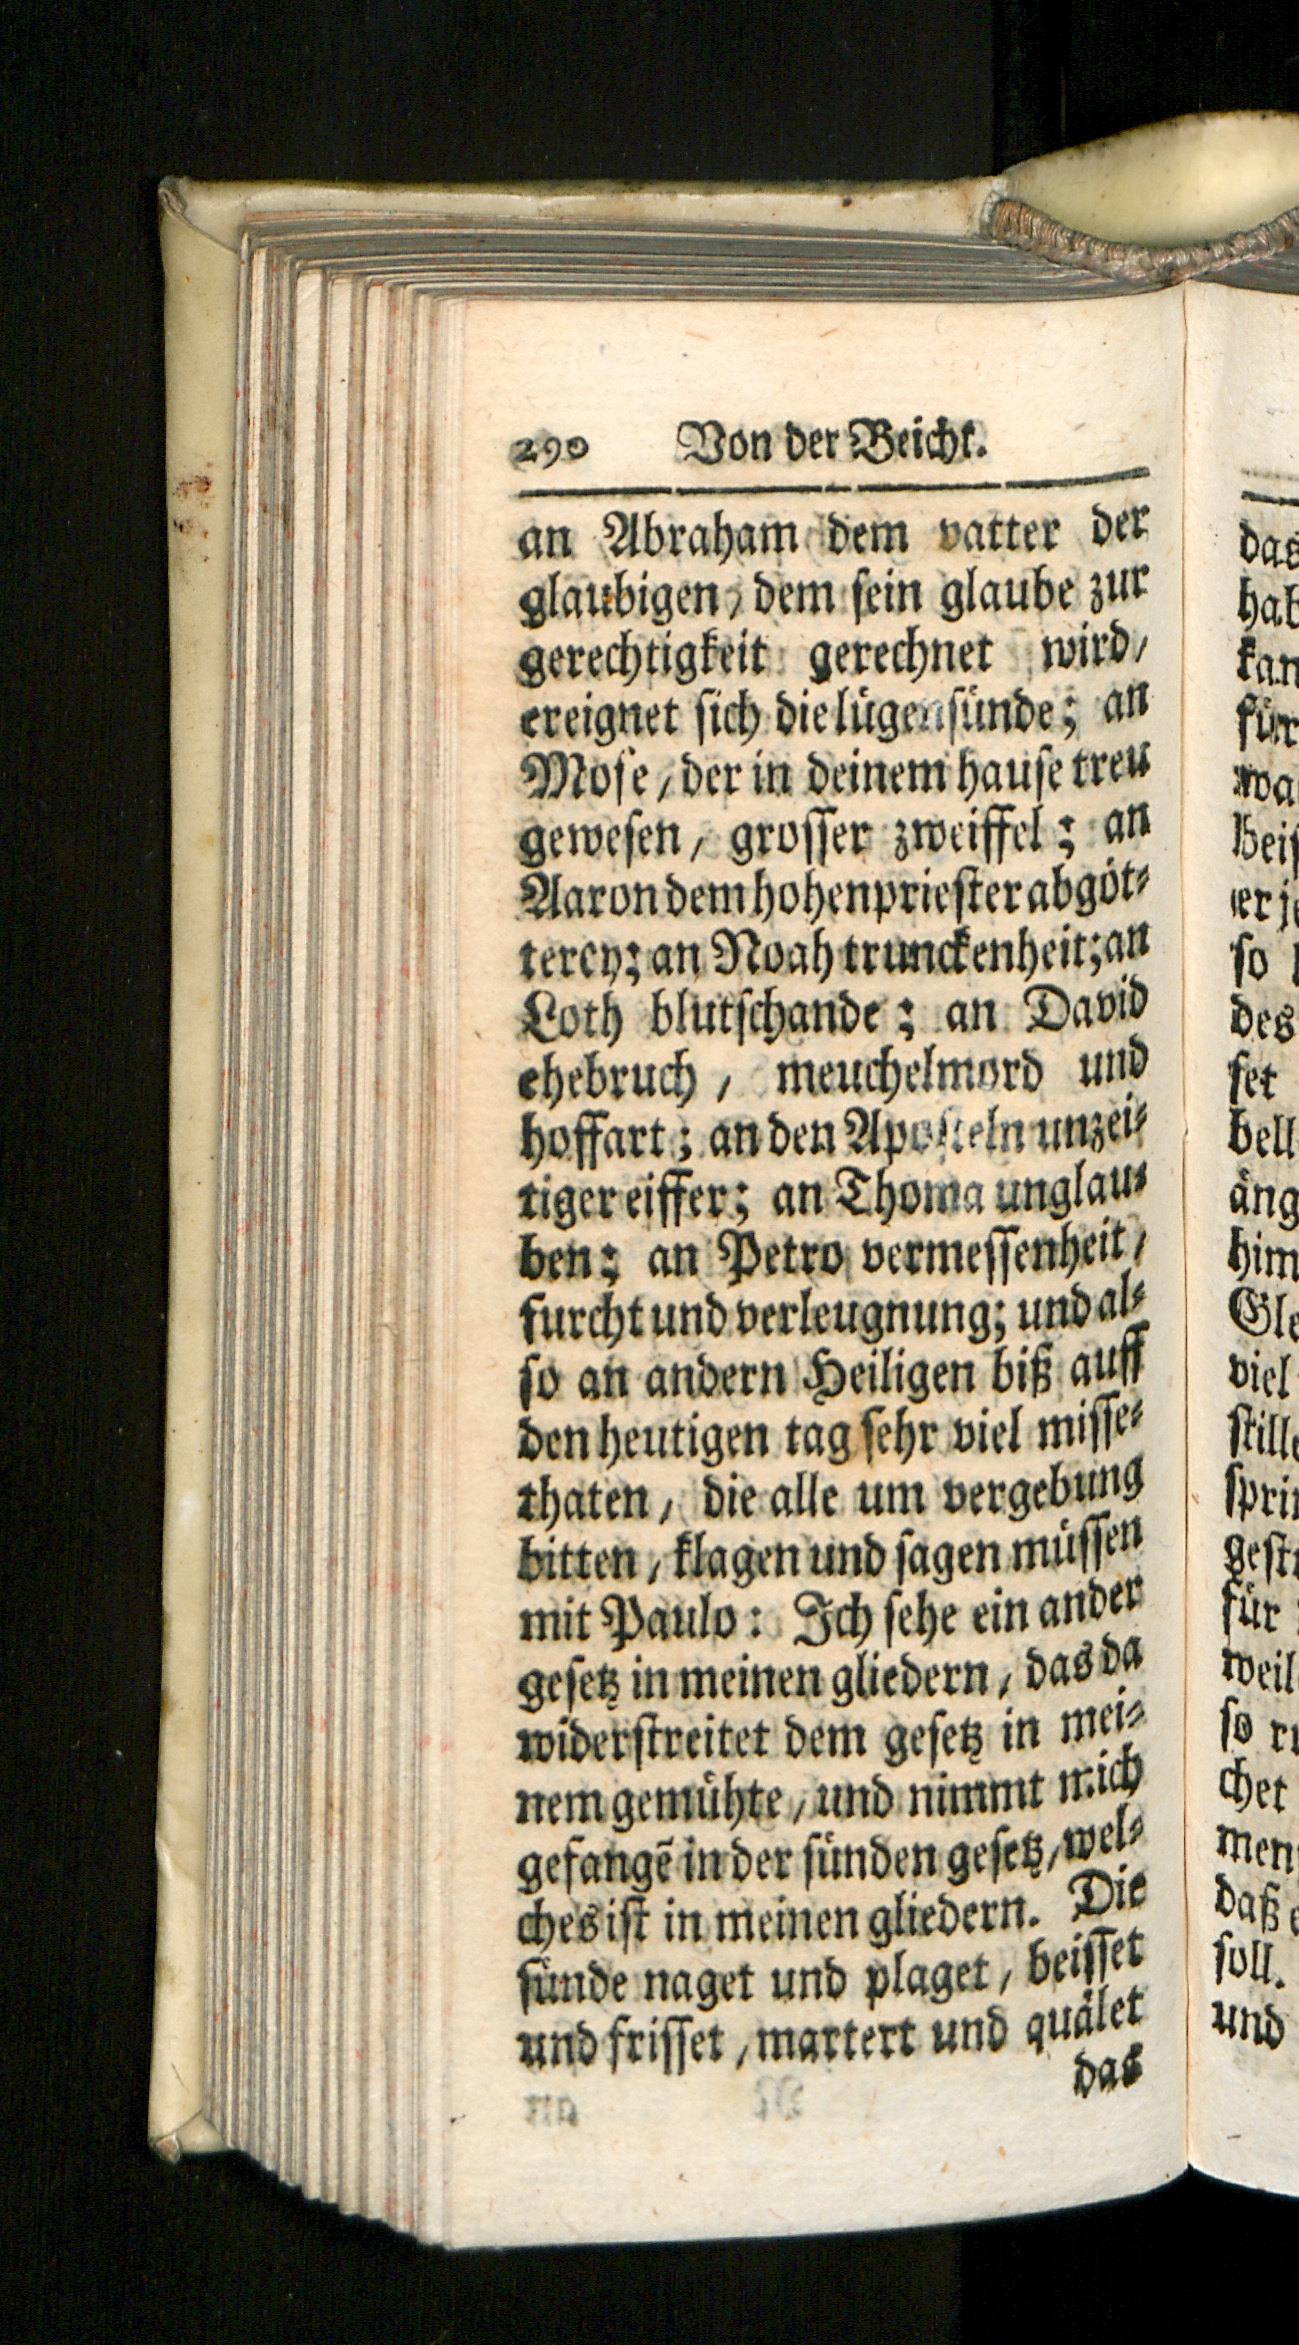 290 Von der Beicht.
an Abraham dem vatter der
glaubigen, dem sein glaube zur
gerechtigkeit gerechnet wird/
ereignet sich die lügensünde; an
Mose/ der in deinem hause treu
gewesen/ grosser zweiffel; an
Aaron dem hohenpriester abgöt-
terey; an Noah trunckenheit; an
Loth blutschande; an David
ehebruch/ meuchelmord und
hoffart; an den Aposteln unzei-
tiger eiffer; an Thoma unglau-
ben; an Petro vermessenheit/
furcht und verleugnung; und al-
so an andern Heiligen biß auff
den heutigen tag sehr viel misse-
thaten/ die alle um vergebung
bitten/ klagen und sagen müssen
mit Paulo: Ich sehe ein ander
gesetz in meinen gliedern/ das da
widerstreitet dem gesetz in mei-
nem gemühte/ und nimmt mich
gefangẽ in der sünden gesetz/ wel-
ches ist in meinen gliedern. Die
sünde naget und plaget/ beisset
und frisset/ martert und quälet
das
das
hab
kan
für
wa
beis
er je
so
des
set
bell
äng
him
Gle
viel
stille
sprin
gest
für
weil
so ru
chet
men
daß e
soll.
und